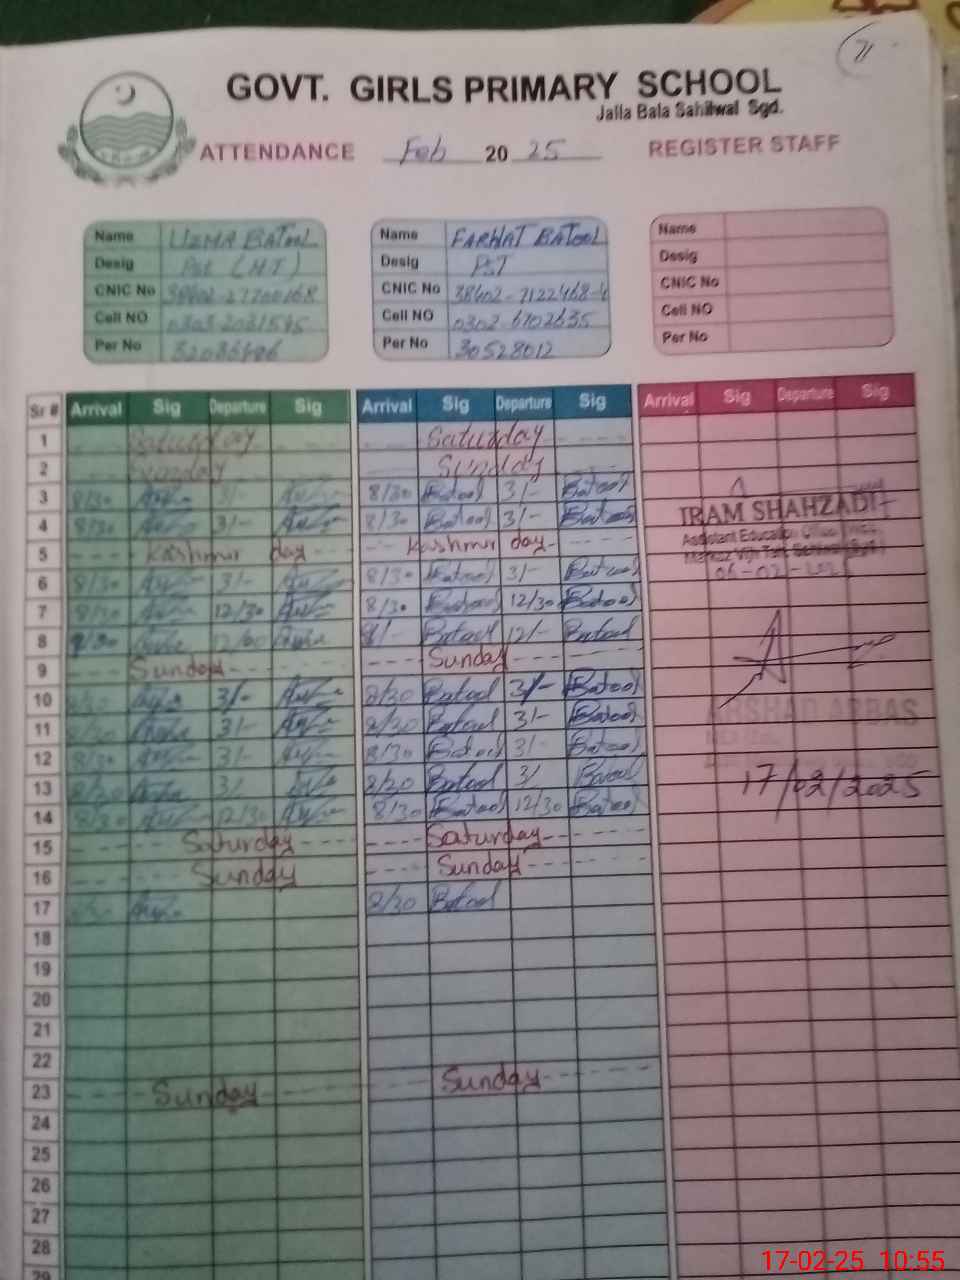 71
GOVT. GIRLS PRIMARY SCHOOL
Jalla Bala Sahilwal Sgd.
ATTENDANCE Feb 2025 REGISTER STAFF
Name UZMA BATOOL Name FARHAT BATOOL Name
Desig Pst (H.T) Desig PST Desig
CNIC No CNIC No 38402-7122468-4 CNIC No
Cell NO Cell NO 0302-6702635 Cell NO
Per No Per No 30528012 Per No
Sr # Arrival Sig Departure Sig Arrival Sig Departure Sig Arrival Sig Departure Sig
1 Saturday Saturday
2 Sunday Sunday
3 8/30 3/- 8/30 Batool 3/- Batool
4 8/30 3/- 8/30 Batool 3/- Batool
IRAM SHAHZADI
Assistant Education
5 Kashmir day Kashmir day
06-02-
6 8/30 3/- 8/30 Batool 3/- Batool
7 8/30 12/30 8/30 Batool 12/30 Batool
8 8/- Batool 12/- Batool
9 Sunday Sunday
10 3/- 8/30 Batool 3/- Batool
11 3/- 8/30 Batool 3/- Batool
ARSHAD ABBAS
12 8/30 3/- 8/30 Batool 3/- Batool
13 3/ 8/30 Batool 3/ Batool
17/02/2025
14 12/30 8/30 Batool 12/30 Batool
15 Saturday Saturday
16 Sunday Sunday
17 8/30 Batool
18
19
20
21
22
23 Sunday Sunday
24
25
26
27
28
29
17-02-25 10:55